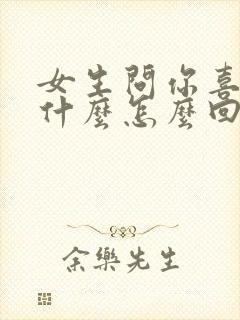 女生問你喜
什麼怎麼回
余樂先生